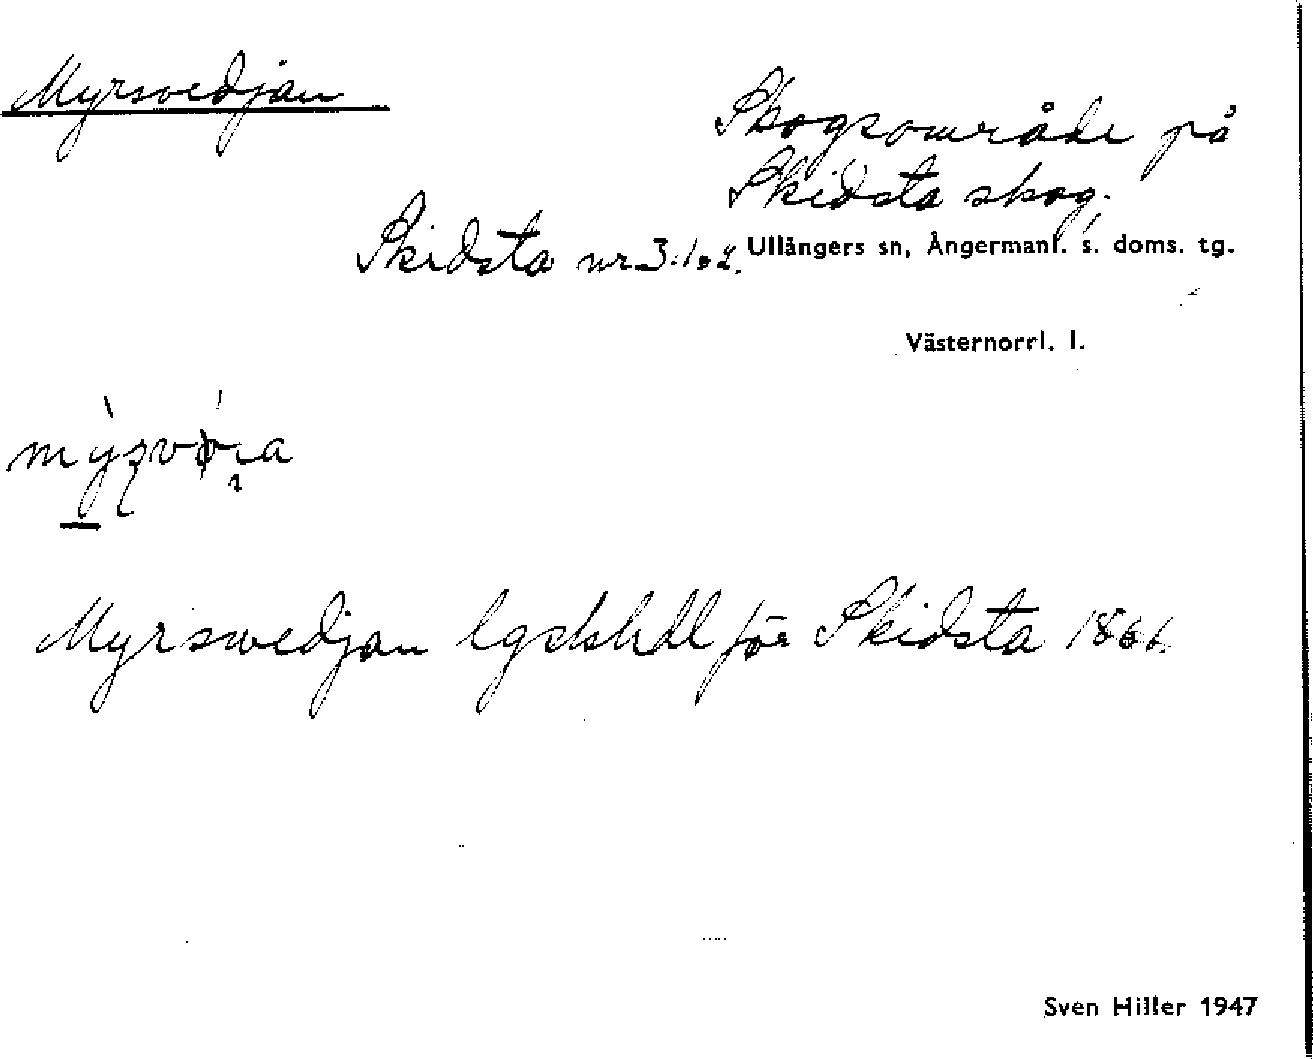 Myrsvedjan
Skogsområde på
Skidsta skog.
Skidsta nr 3:1o2. Ullångers sn, Ångermanl. s. doms. tg.
Västernorrl. l.
Myrswedjan lgskhdl för Skidsta 1866.
Sven Hiller 1947